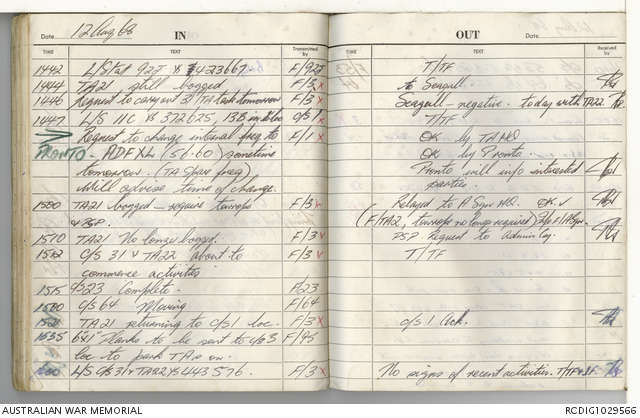 Date 12 Aug 68 IN
TIME TEXT Transmitted by
1442 L/Stat 92J YS 423667 F/92J
1444 TA21 still bogged F/3
1446 Request to carry out 31/TA task tomorrow F/3
1447 L/S 11C YS 372625, 13B in bloc C/S 1
Request to change internal freq to F/1
PRONTO - ADFXL (56.60) sometime
tomorrow. (TA Spare freq)
Will advise time of change.
1500 TA21 bogged - require turrops F/3
& PSP.
1510 TA21 No longer bogged. F/3
1512 C/S 31 & TA22 about to F/3
commence activities
1515 4323 Complete. F/23
1500 C/S 64 Moving F/64
1521 TA21 returning to C/S 1 loc. F/3
1535 6x1" planks to be sent to C/S 3 F/45
loc to park TAs on.
L/S C/S 31 & TA22 YS 443576. F/3
OUT
TIME TEXT Received by
T/TF
to Seagull
Seagull - negative - today with TA22
T/TF
OK by TA HQ
OK by Pronto.
Pronto will info interested
parties
Relayed to A Sqn HQ. OK
(F/TA2, turrops no longer required)
PSP Request to Admin Log.
T/TF
C/S 1 Ack.
No signs of recent activities. T/TF
AUSTRALIAN WAR MEMORIAL RCDIG1029566